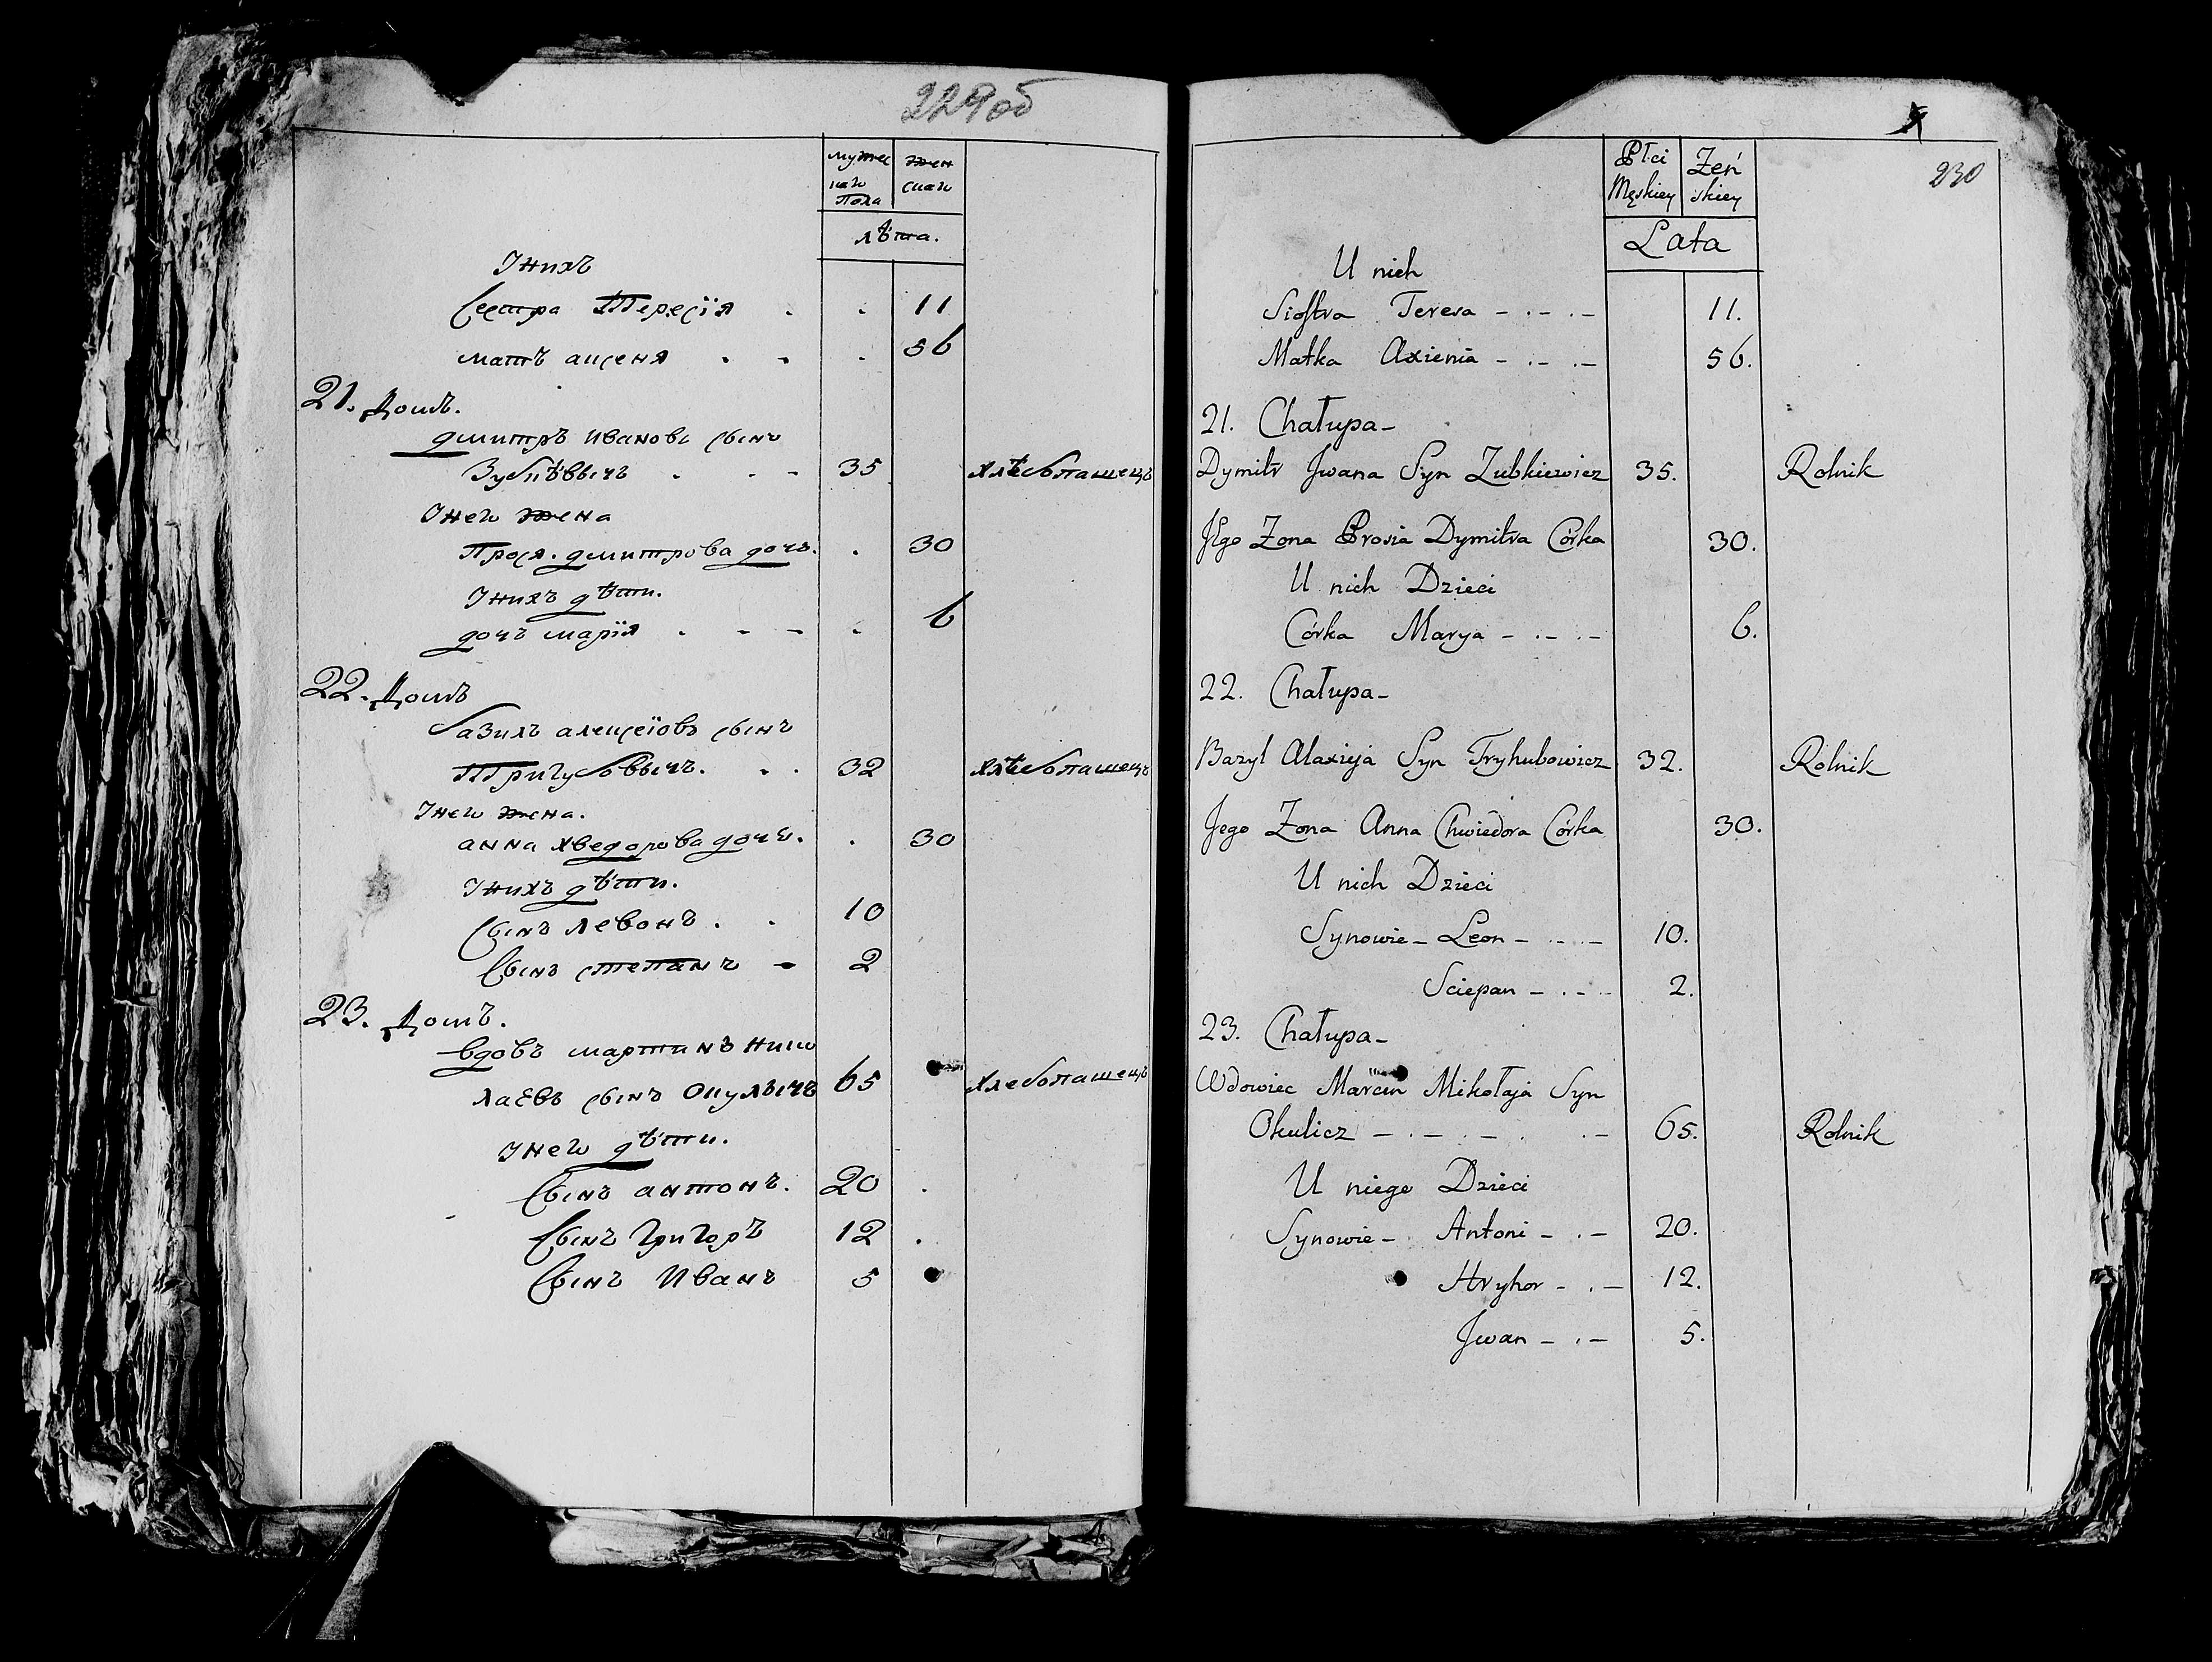 229об
мужес женс
каго скаго
пола
лѣта.
У нихъ
Сестра Тересія . . 11
мать аксеня . . . 56
21. Домъ.
дмитръ Ивановъ сынъ
Зубкѣвичъ . . - 35 хлѣбопашецъ
У него жена
Прося. дмитрова дочь. . 30
У нихъ дѣти.
дочь марія . - - . 6
22. Домъ
базиль алексіовъ сынъ
Тригубовичъ. . . 32 хлѣбопашецъ
У него жена.
анна хведорова дочь. . 30
У нихъ дѣти.
Сынъ левонъ . . 10
Сынъ степанъ - 2
23. Домъ.
вдовъ мартинъ нико
лаевъ сынъ Окуличъ 65 хлебопашецъ
У него дѣти.
Сынъ антонъ. 20 .
Сынъ григоръ 12 .
Сынъ Иванъ 5
230
Płci Żeń
Męskiey skiey
Lata
U nich
Siostra Teresa - . - . - 11.
Matka Axienia - . - . - 56.
21. Chałupa -
Dymitr Jwana Syn Zubkiewicz 35. Rolnik
Jego Zona Prosia Dymitra Córka 30.
U nich Dzieci
Córka Marya - . - . - 6.
22. Chałupa -
Bazyl Alaxieja Syn Tryhubowicz 32. Rolnik
Jego Zona Anna Chwiedora Córka 30.
U nich Dzieci
Synowie - Leon - . . . - 10.
Sciepan - . . - 2.
23. Chałupa -
Wdowiec Marcin Mikołaja Syn
Okulicz - . - . - . . - 65. Rolnik
U niego Dzieci
Synowie - Antoni - . - 20.
Hryhor - . - 12.
Jwan - . - 5.